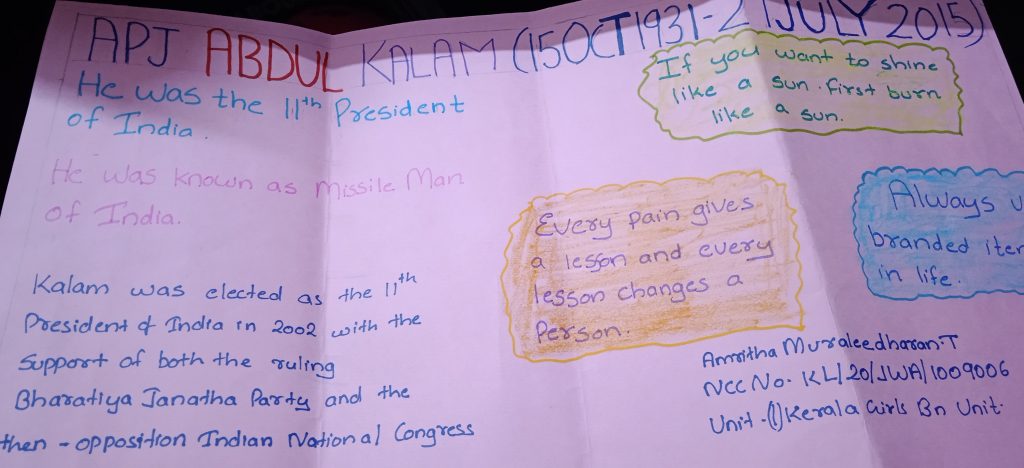 APJ ABDUL KALAM (15OCT1931-27JULY 2015)
He was the 11th President
of India.
He was known as Missile Man
of India.
Kalam was elected as the 11th
President of India in 2002 with the
support of both the ruling
Bharatiya Janatha Party and the
then - opposition Indian National Congress
If you want to shine
like a sun. first burn
like a sun.
Every pain gives
a lesson and every
lesson changes a
Person.
Always
branded
in life.
Amritha Muraleedharan.T
Ncc No. KL/20/JWA/1009006
Unit -(1) Kerala Girls Bn Unit.